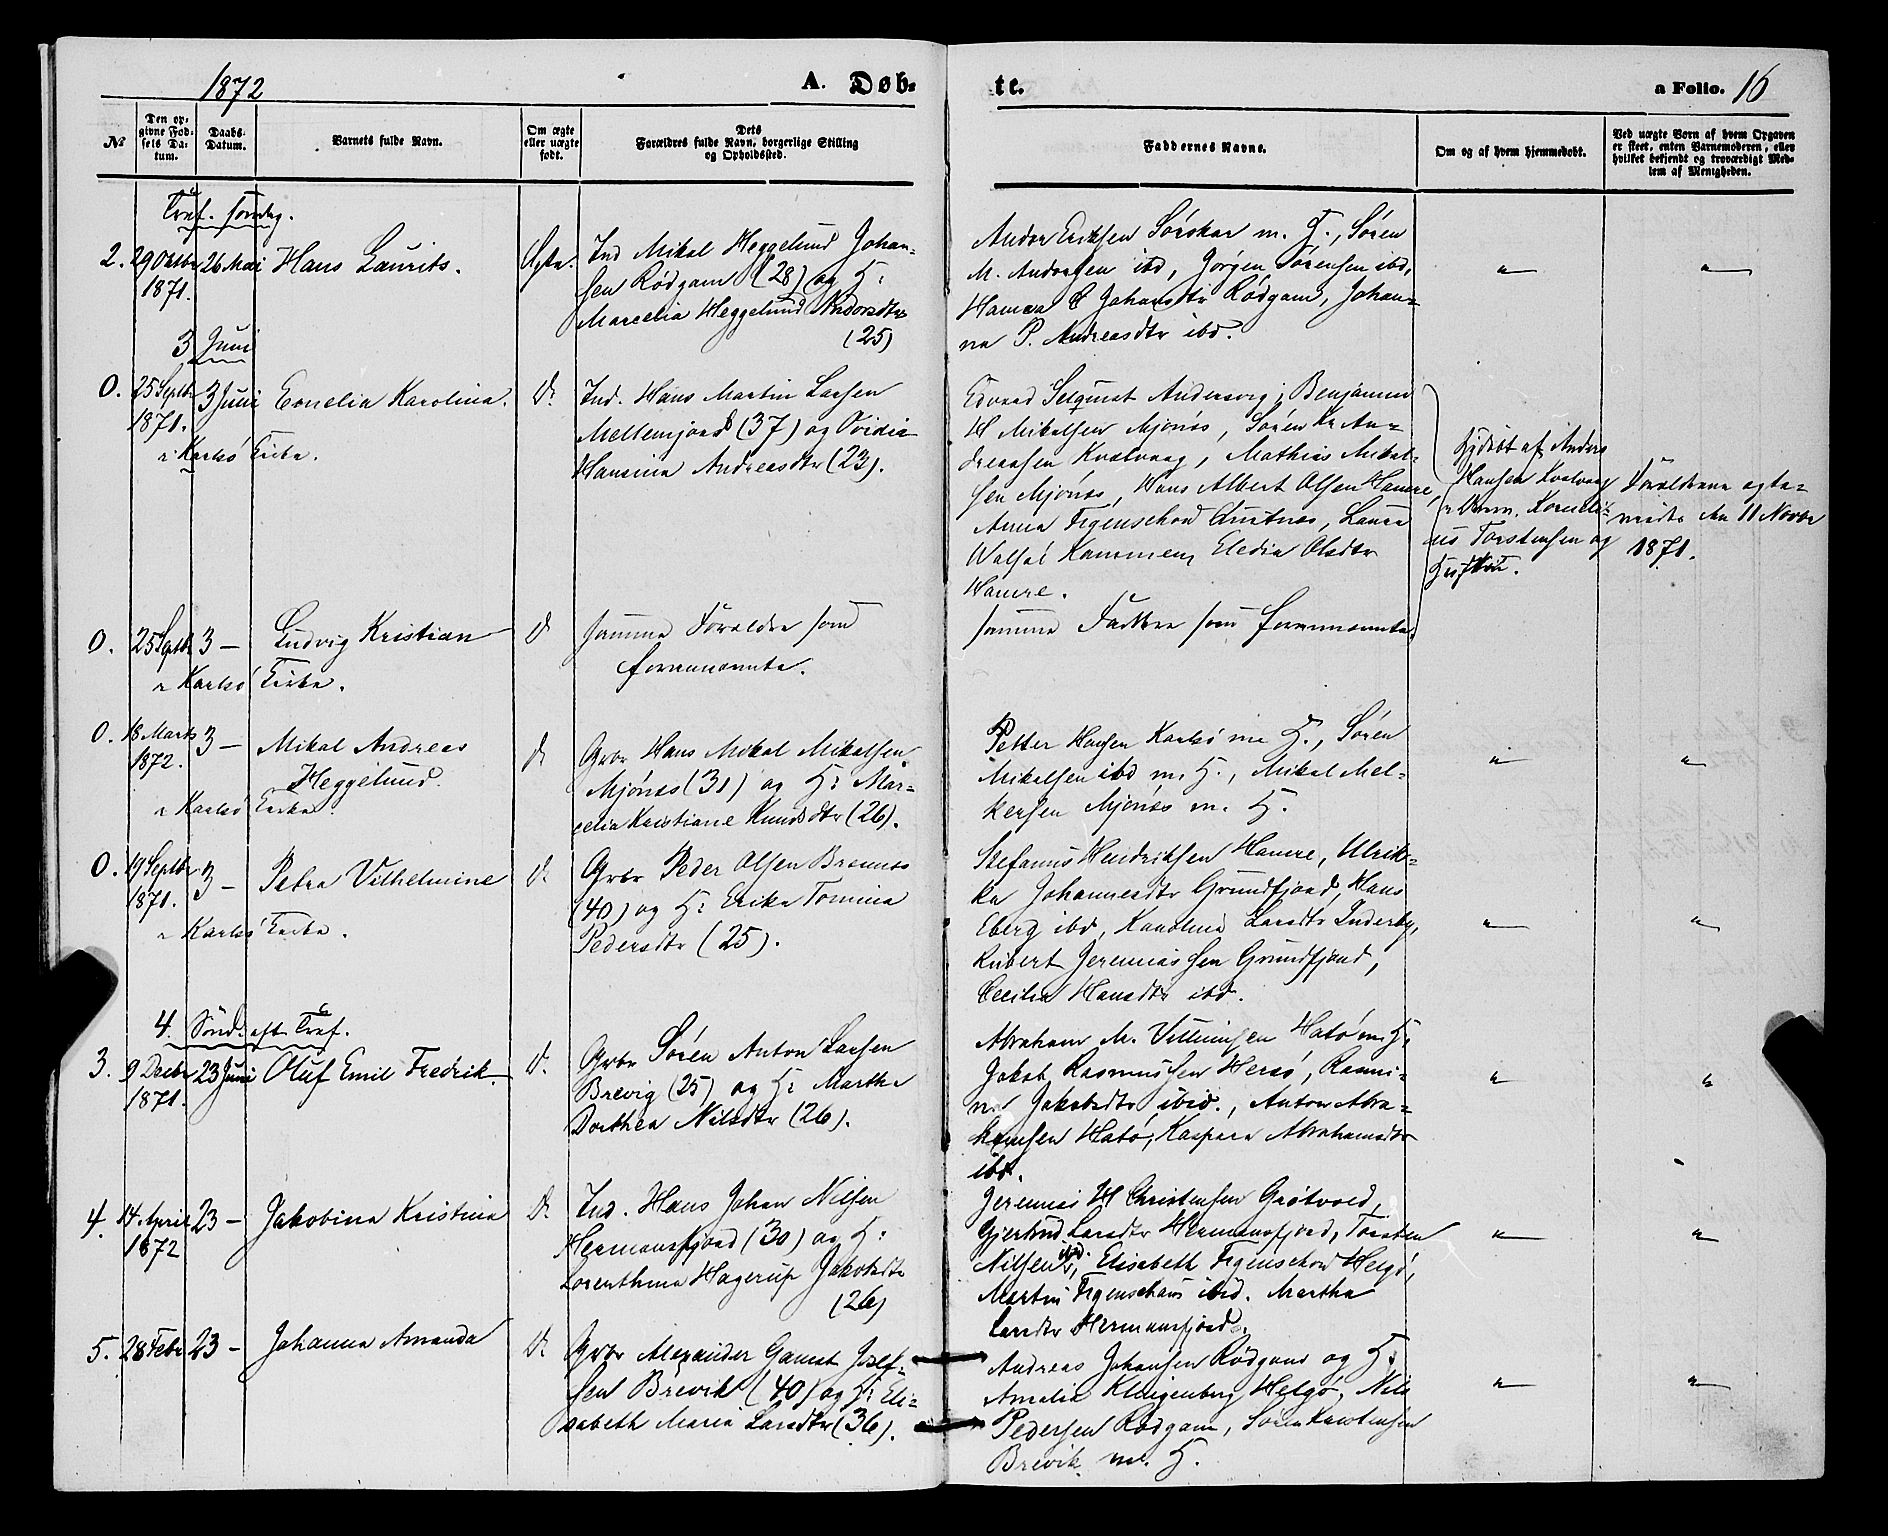 1872
A. Døb-
te.
a Folio. 16
№
Den op-
givne Fød-
sels Da-
tum.
Daabs-
Datum.
Barnets fulde Navn.
Om ægte
eller uægte
født.
Dets
Forældres fulde Navn, borgerlige Stilling
og Opholdssted.
Faddernes Navne.
Om og af hvem hjemmedøbt.
Ved uægte Børn af hvem Opgaven
er skeet, enten Barnemoderen, eller
hvilket bekjendt og troværdigt Med-
lem af Menigheden.
Tref. søndag.
2. 29 Oktbr 26 Mai Hans Laurits. Ægte.
1871.
Ind Mikal Heggelund Johan-
sen Rødgam (28) og H:
Marcelia Heggelund Andorsdtr
(25)
Andor Eriksen Sørskar m. H., Sören
M. Andorsen ibd, Jørgen Sørensen ibd,
Johansdtr Rødgam, Johan-
na P. Andreasdtr ibd.
3 Juni
0. 25 Septbr 3 Juni Cornelia Karolina. D.
1871.
i Karlsö Kirke.
Ind. Hans Martin Larsen
Mellemjord (37) og Ovidia
Hansina Andreasdtr (23).
Edvard Selqvist Andersvig, Benjamin
H Mikalsen Mjönes, Sören Kr An-
dreassen Kvalvaag, Mathias Mikal-
sen Mjönes, Hans Albert Olsen Hamre,
Anna Figenschou Austnes, Laura
Walsøe Kammen, Eledia Olsdtr
Hamre.
Hjdöbt af Anders
Hansen Kvalvaag
Korneli-
us Torstensen og
Forældrene ægte-
viede den 11 Novbr
1871.
0. 25 Septbr 3 — Ludvig Kristian D
i Karlsö Kirke.
samme Forældre som
forrennævnte.
samme Faddere som forrennævnte.
0. 18 Marts 3 — Mikal Andreas
1872. Heggelund. D
i Karlsö Kirke.
Grbr Hans Mikal Mikalsen
Mjönes (31) og H: Mar-
celia Kristiane Knudsdtr (26).
Petter Hansen Karlsö m H., Sören
Mikalsen ibd m. H., Mikal Mel-
kersen Mjönes m. H.
0. 19 Septbr 3 — Petra Vilhelmine D.
1871.
i Karlsö Kirke.
Grbr Peder Olsen Bremnes
(40) og H: Erika Tomina
Pedersdtr (25).
Stefanus Hendriksen Hamre, Ulrik-
ka Johannesdtr Grundfjord, Hans
Eberg ibd, Karolina Larsdtr Inderby,
Rubert Jeremiassen Grundfjord,
Cecilia Hansdtr ibd.
4. Sönd. eft. Tref.
3. 9 Decbr 23 Juni Oluf Emil Fredrik. D.
1871.
Grbr Sören Anton Larsen
Brevig (25) og H: Martha
Dorthea Nilsdtr (26).
Abraham M. Vilhelmsen Hatö m. H.
Jakob Rasmussen Hersö, Rasmi-
ne Jakobsdtr ibid., Anton Abra-
hamsen Hatö, Kaspara Abrahamsdtr
ibd.
4. 14 April 23 — Jakobina Kristina D.
1872
Ind. Hans Johan Nilsen
Hermansfjord (30) og H:
Lorenthina Hagerup Jakobsdtr
(26)
Jeremias H Christensen Grötvold,
Gjertrud Larsdtr Hermansfjord, Torsten
Nilsen ibd., Elisabeth Figenschou Helgö,
Martin Figenschau ibid. Martha
Larsdtr Hermansfjord.
5. 28 Febr 23 — Johanna Amanda D.
Grbr Alexander Gamst Josef-
sen Brevik (40) og H: Eli-
sabeth Maria Larsdtr (36).
Andreas Johansen Rödgam og H.
Amalia Klingenberg Helgö, Nils
Pedersen Rödgam, Sören Karstensen
Brevik m. H.